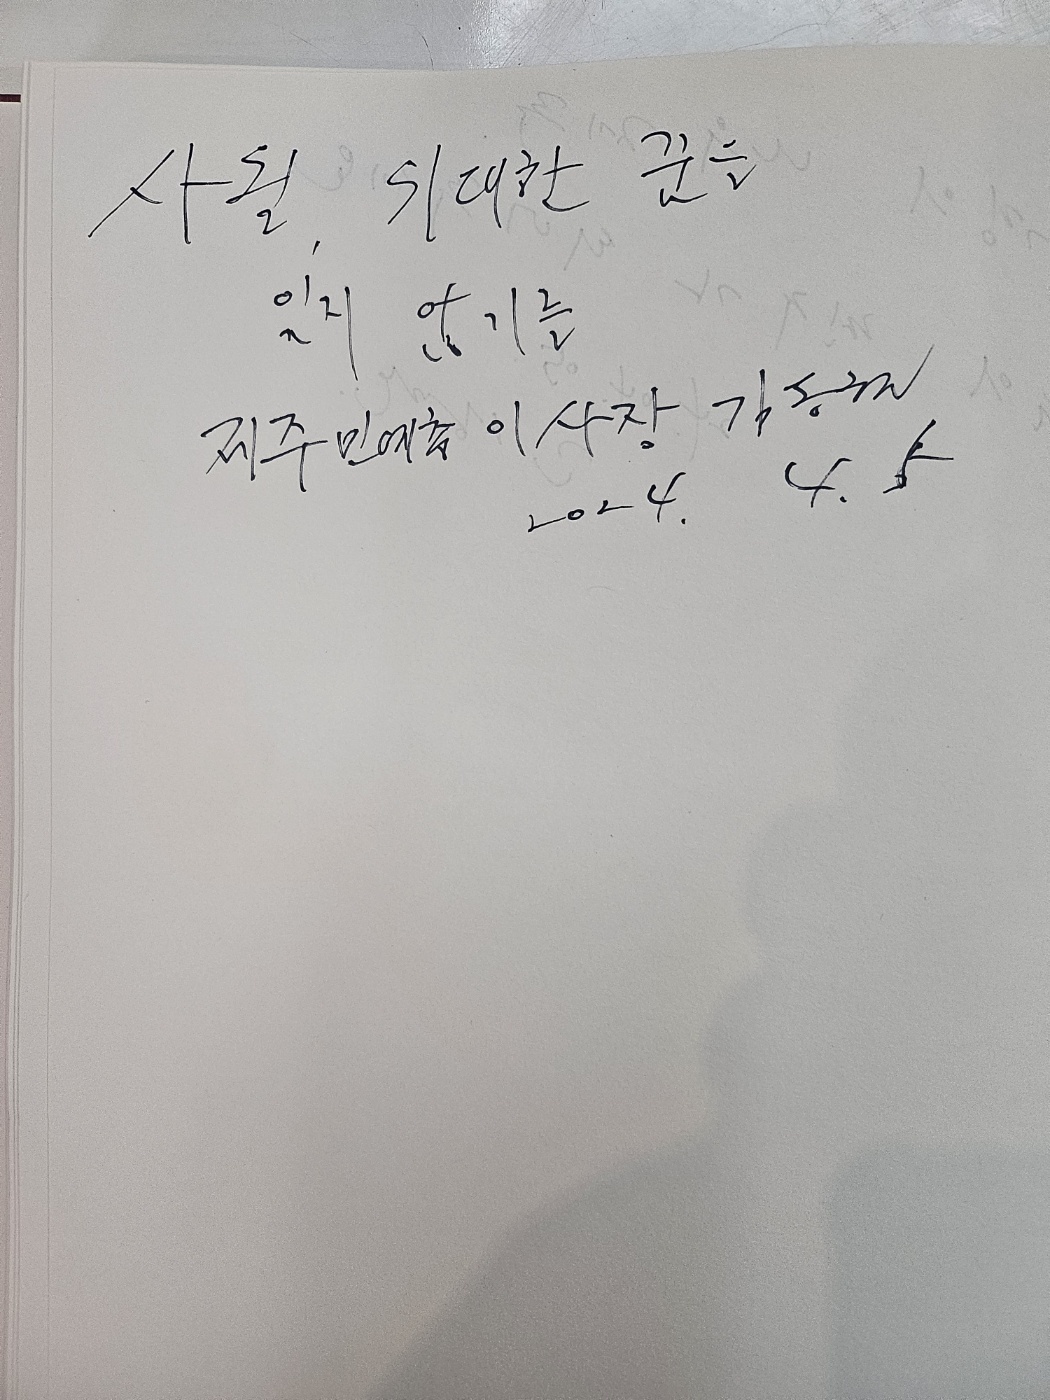 사월, 위대한 꿈을
잊지 않기를
제주민예총 이사장 김동현
2024. 4. 5